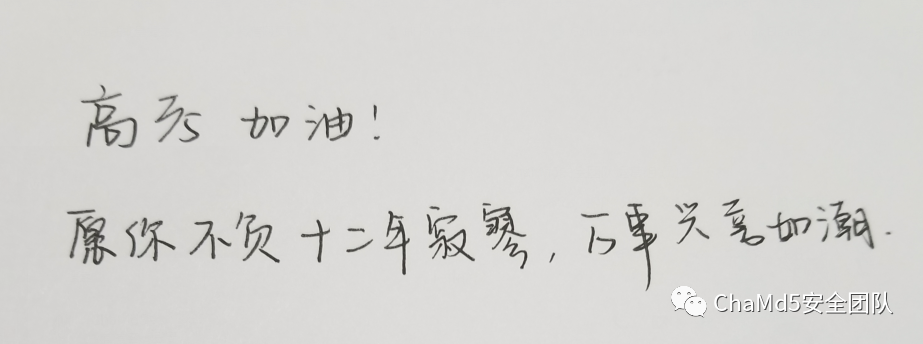 高考 加油!
愿你不负十二年寂寥,万事兴喜如潮.
ChaMd5安全团队